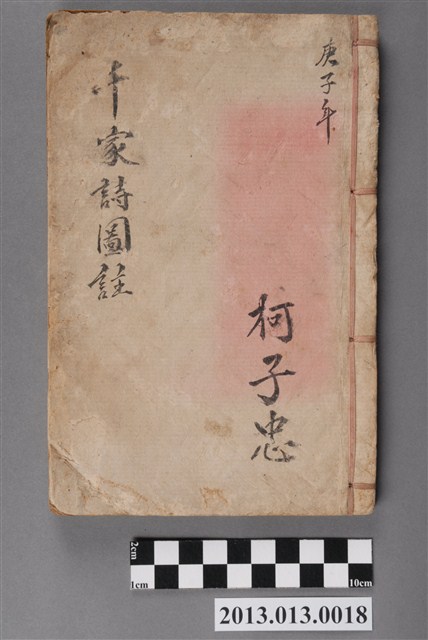 庚子年
柯子忠
千家詩圖註
2cm
1cm
10cm
2013.013.0018